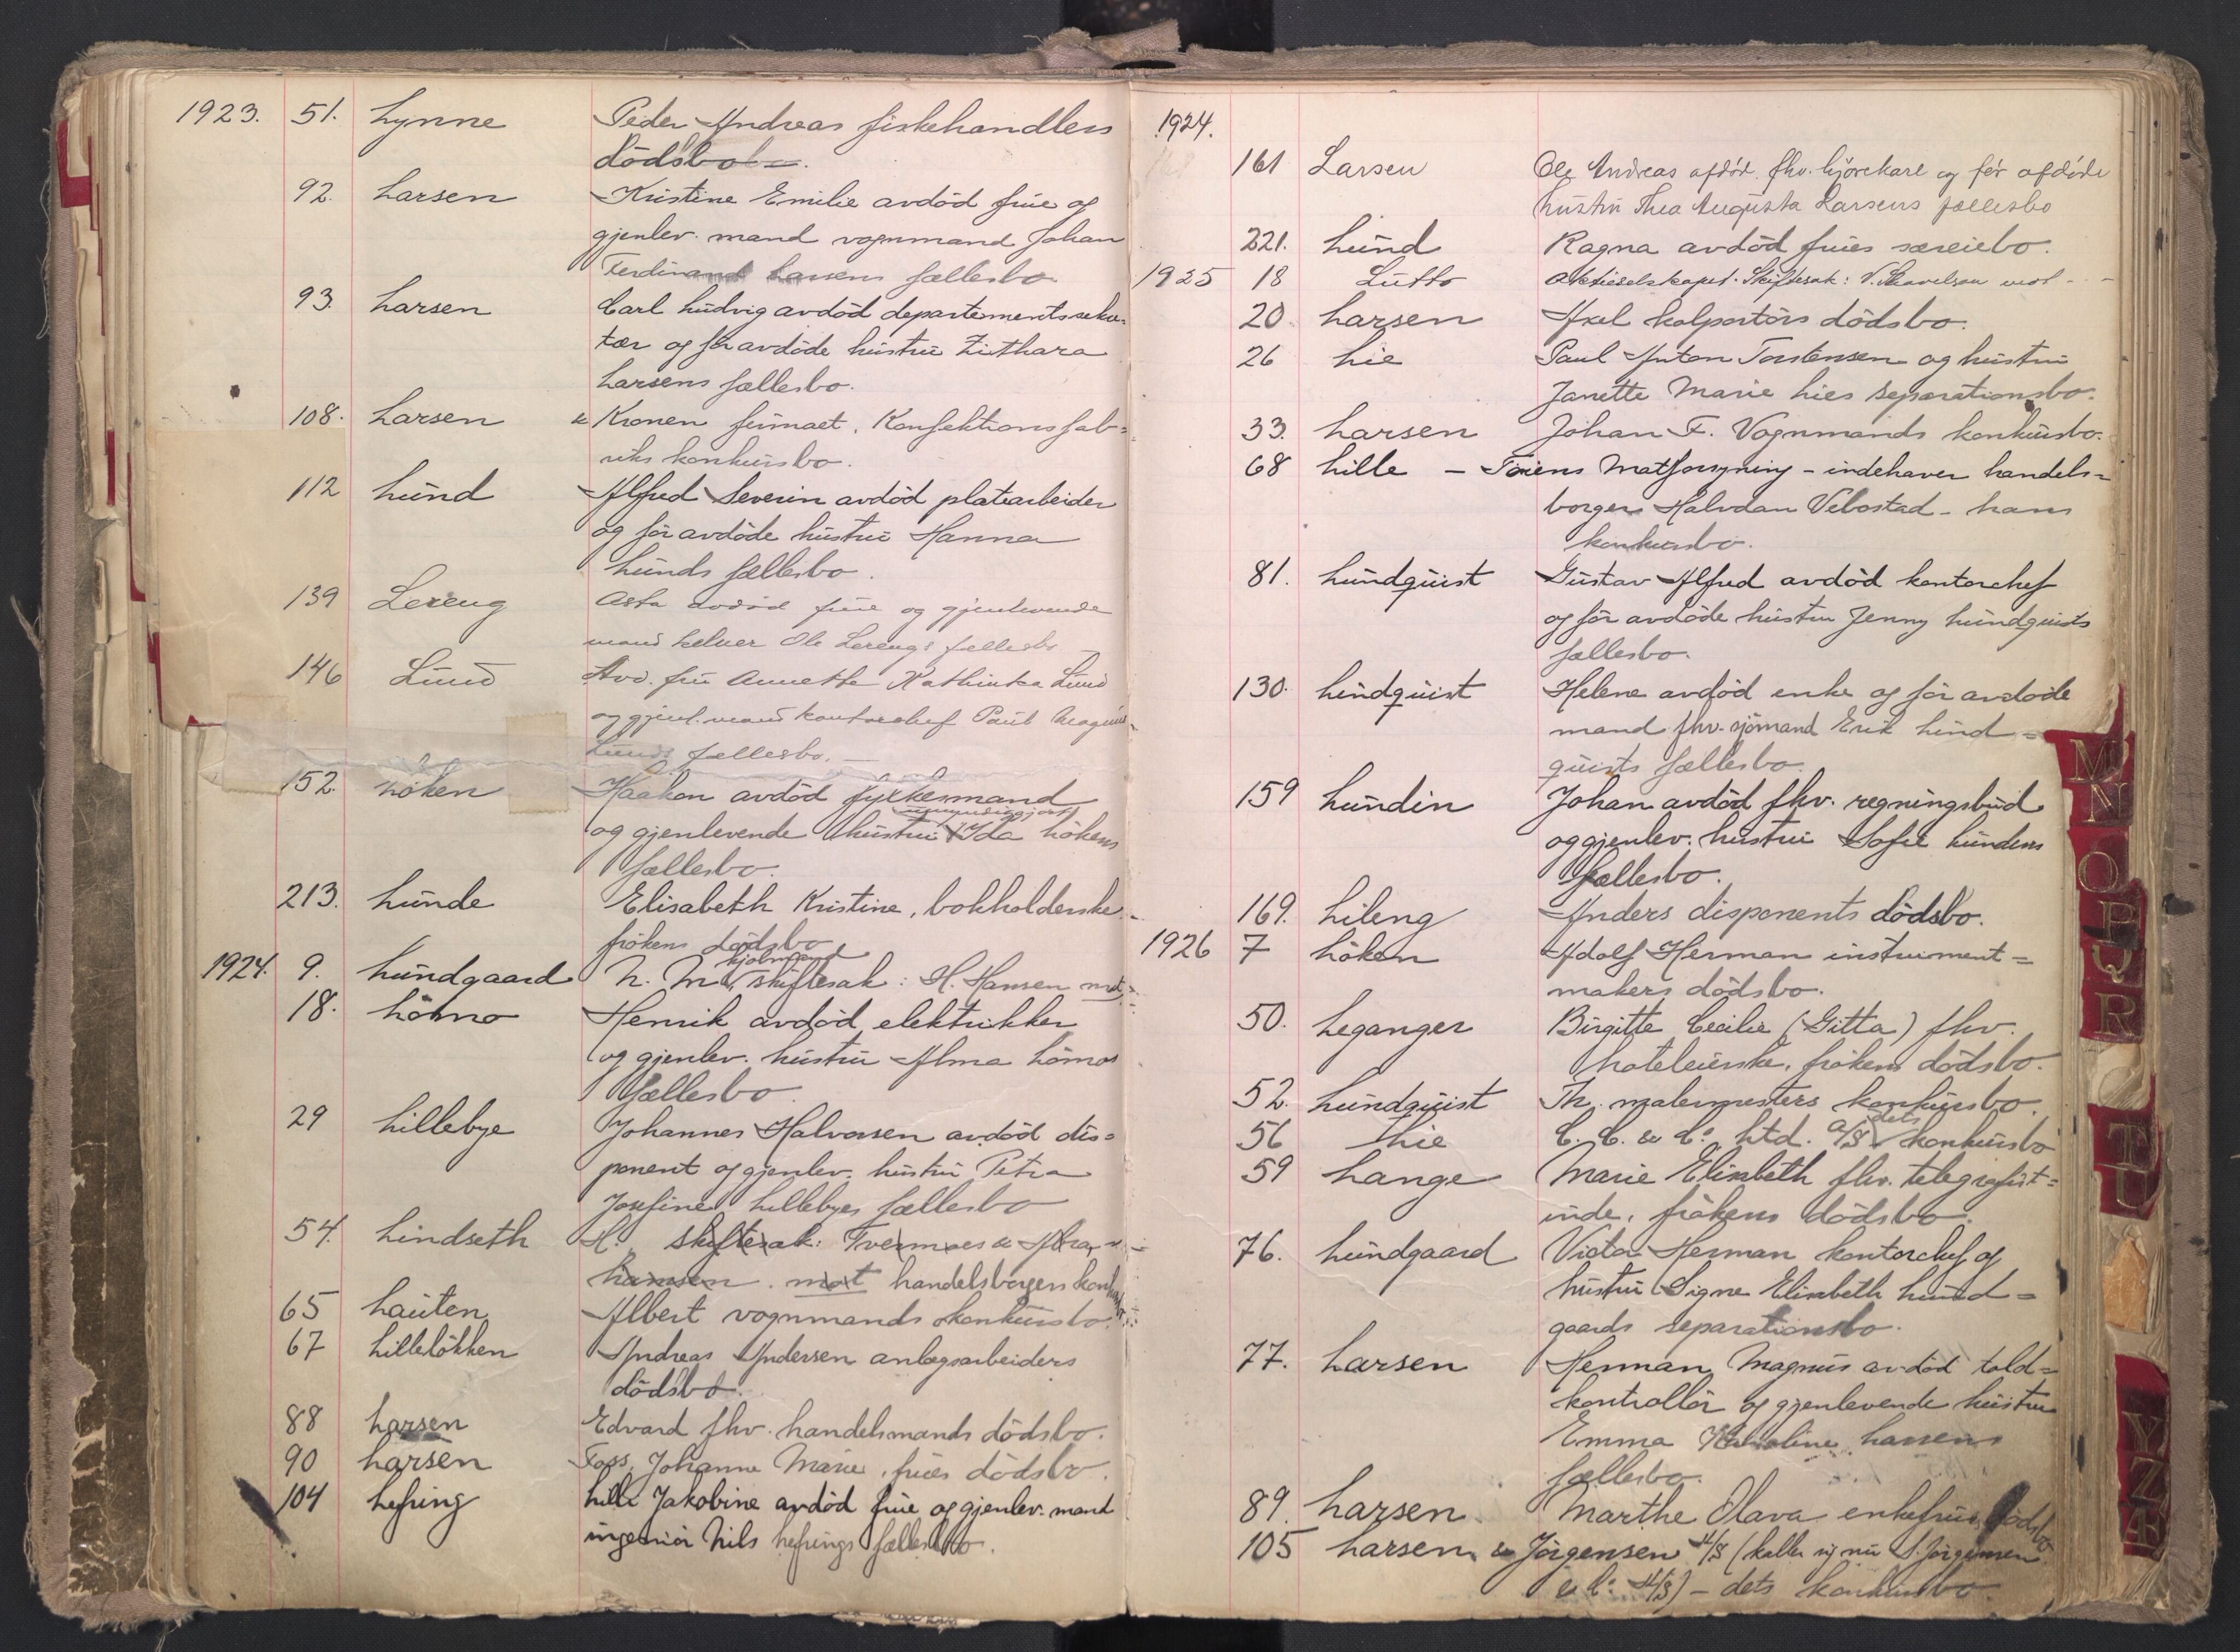 1923. 51. Lynne Peder Andreas fiskehandlers
dödsbo.
92. Larsen Kristine Emilie avdöd frue og
gjenlev. mand vognmand Johan
Ferdinand Larsens fællesbo
93. Larsen Carl Ludvig avdöd departementssekre-
tær og før avdöde hustru
Larsens fællesbo.
108. Larsen & Kronen firmaet, Konfektionsfab-
riks konkursbo.
112 Lund Alfred Severin avdöd platearbeider
og før avdöde hustru Hanna
Lunds fællesbo.
139 Lereng Asta avdöd frue og gjenlevende
mand kelner Ole Lerengs fællesbo
146 Lund Avd. fru Annette Kathinka Lund
og gjenl. mand kontorchef Paul Magnus
Lunds fællesbo.
152. Löken Haakon avdöd fyrkesmand
og gjenlevende hustru umyndiggjort Ida Lökens
fællesbo.
213. Lunde Elisabeth Kristine, bokholderske,
frökens dödsbo
1924. 9. Lundgaard N. M. skiftesak: H. Hansen mot
18. Lömo Henrik avdöd elektrikker
og gjenlev. hustru Alma Lömos
fællesbo
29 Lillebye Johannes Halvorsen avdöd dis-
ponent og gjenlev. hustru Petra
Josefine Lillebyes fællesbo
54. Lindseth H. Skiftesak: Tvermoes & Abra-
hamsen. mot handelsborgers konkursbo
65 Lauten Albert vognmands konkursbo.
67 Lillelökken Andreas Andersen anlægsarbeiders
dödsbo.
88 Larsen Edvard fhv. handelsmands dödsbo.
90 Larsen Foss, Johanne Marie, frues dödsbo.
104 Lefring Lilli Jakobine avdöd frue og gjenlev. mand
ingeniör Nils Lefrings fællesbo.
1924.
161 Larsen Ole Andreas afdöd fhv. kjörekarl og før afdöde
hustru Thea Augusta Larsens fællesbo
221. Lund Ragna avdöd frues særeiebo.
1925 18 Lutto Aktieselskapet. Skiftesak: mot - -
20. Larsen Axel kolportörs dödsbo.
26 Lie Paul Anton Torstensen og hustru
Janette Marie Lies separationsbo.
33. Larsen Johan F. Vognmands konkursbo.
68 Lille - Töiens Matforsyning - indehaver handels-
borger Halvdan Vebostad - hans
konkursbo.
81. Lundquist Gustav Alfred avdöd kontorchef
og før avdöde hustru Jenny Lundquists
fællesbo.
130. Lindquist Helene avdöd enke og før avdöde
mand fhv. sjömand Erik Lind-
quists fællesbo.
159 Lundin Johan avdöd fhv. regningsbud
og gjenlev. hustru Sofie Lundins
fællesbo.
169. Lileng Anders disponents dödsbo.
1926 7 Löken Adolf Herman instrument-
makers dödsbo.
50. Leganger Birgitte Cecilie (Gitta) fhv.
hoteleierske, frökens dödsbo.
52. Lundquist Th. malermesters konkursbo.
56 Lie C. C. & Co Ltd. A/S dets konkursbo
59 Lange Marie Elisabeth fhv. telegrafist-
inde, frökens dödsbo.
76. Lundgaard Victor Herman kontorchef og
hustru Signe Elisabeth Lund-
gaards separationsbo.
77. Larsen Herman Magnus avdöd told-
kontrollör og gjenlevende hustru
Emma Karoline Larsens
fællesbo.
89. Larsen Marthe Olava enkefrues dödsbo
105 Larsen & Jörgensen A/S (kaller sig nu S. Jörgensen
& Co A/S) - dets konkursbo.
M
N
O
P
Q
R
T
U
Y
Z
Æ